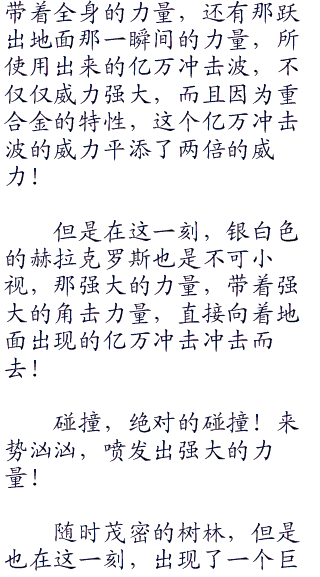 带着全身的力量，还有那跃
出地面那一瞬间的力量，所
使用出来的亿万冲击波，不
仅仅威力强大，而且因为重
合金的特性，这个亿万冲击
波的威力平添了两倍的威
力！
但是在这一刻，银白色
的赫拉克罗斯也是不可小
视，那强大的力量，带着强
大的角击力量，直接向着地
面出现的亿万冲击冲击而
去！
碰撞，绝对的碰撞！来
势汹汹，喷发出强大的力
量！
随时茂密的树林，但是
也在这一刻，出现了一个巨